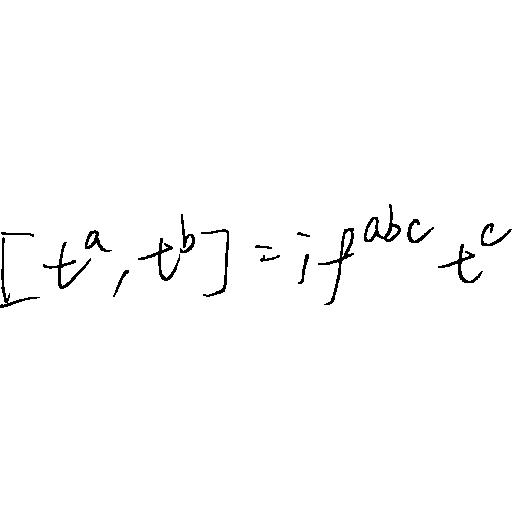 [t^a, t^b] = if^{abc} t^c